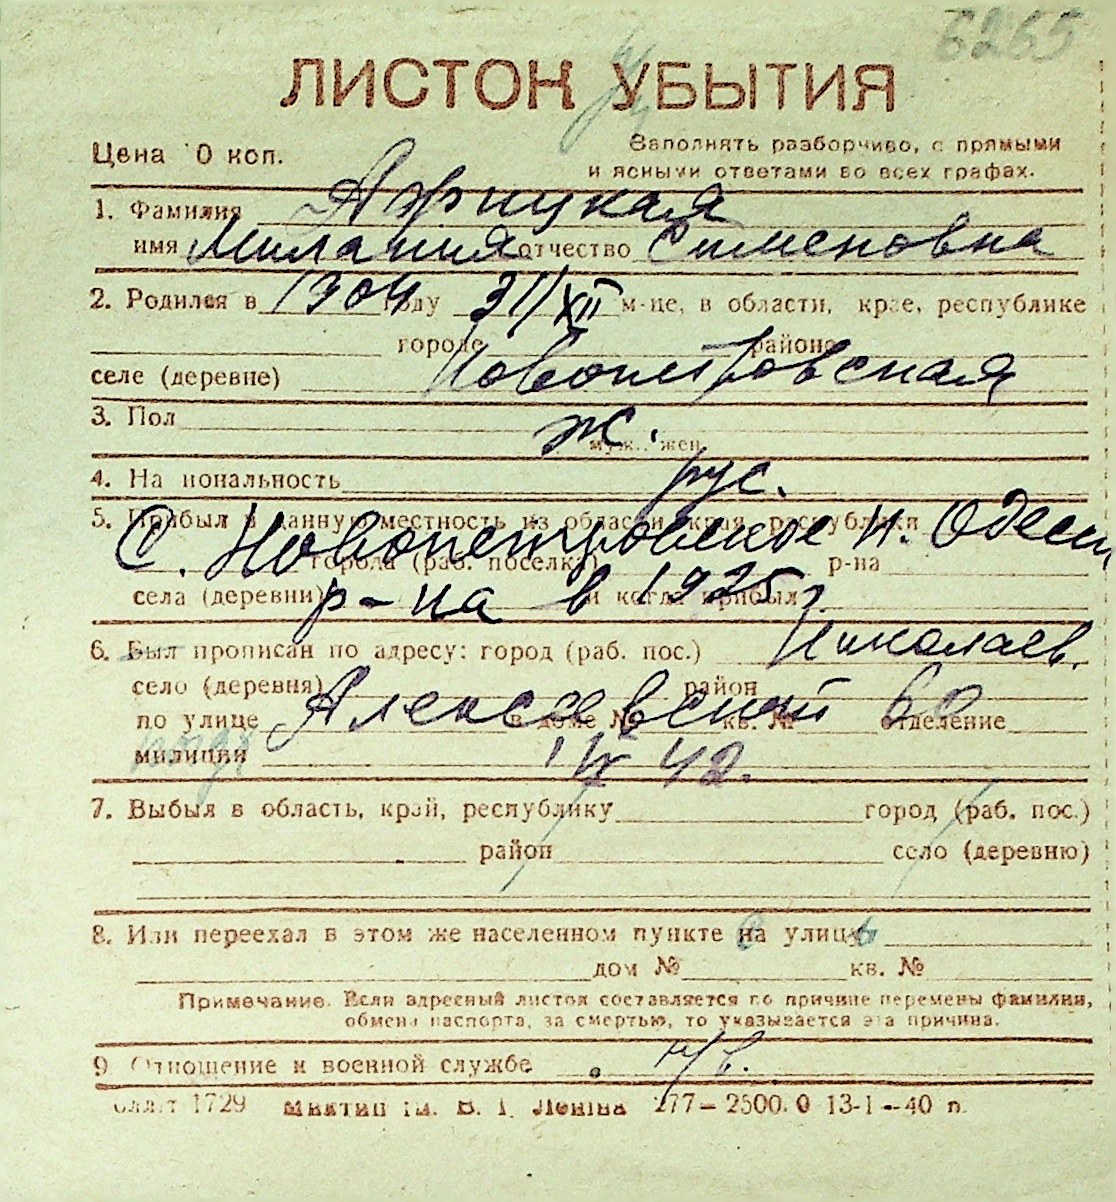 6265
ЛИСТОК УБЫТИЯ
Цена 10 коп.
Заполнять разборчиво, с прямыми
и ясными ответами во всех графах.
1. Фамилия
имя Милания отчество Сименовна
2. Родился в 1904 году 31/XII м-це, в области, крае, республике
городе районе
селе (деревне) Новопитровская
3. Пол ж.
муж., жен.
4. Национальность рус.
5. Прибыл в данную местность из области, края, республики
С. Новопетровское Н. Одесск
города (раб. поселка) р-на
села (деревни) и когда прибыл
р-на в 1925 г.
6. Был прописан по адресу: город (раб. пос.) Николаев.
село (деревня) район
по улице Алексеевской 60 в доме № кв. № отделение
милиции 42.
7. Выбыл в область, край, республику город (раб. пос.)
район село (деревню)
8. Или переехал в этом же населенном пункте на улицу
дом № кв. №
Примечание. Если адресный листок составляется по причине перемены фамилии,
обмена паспорта, за смертью, то указывается эта причина.
9 Отношение к военной службе н/в.
1729 им. В. І. Леніна 277—2500.0 13-1—40 п.